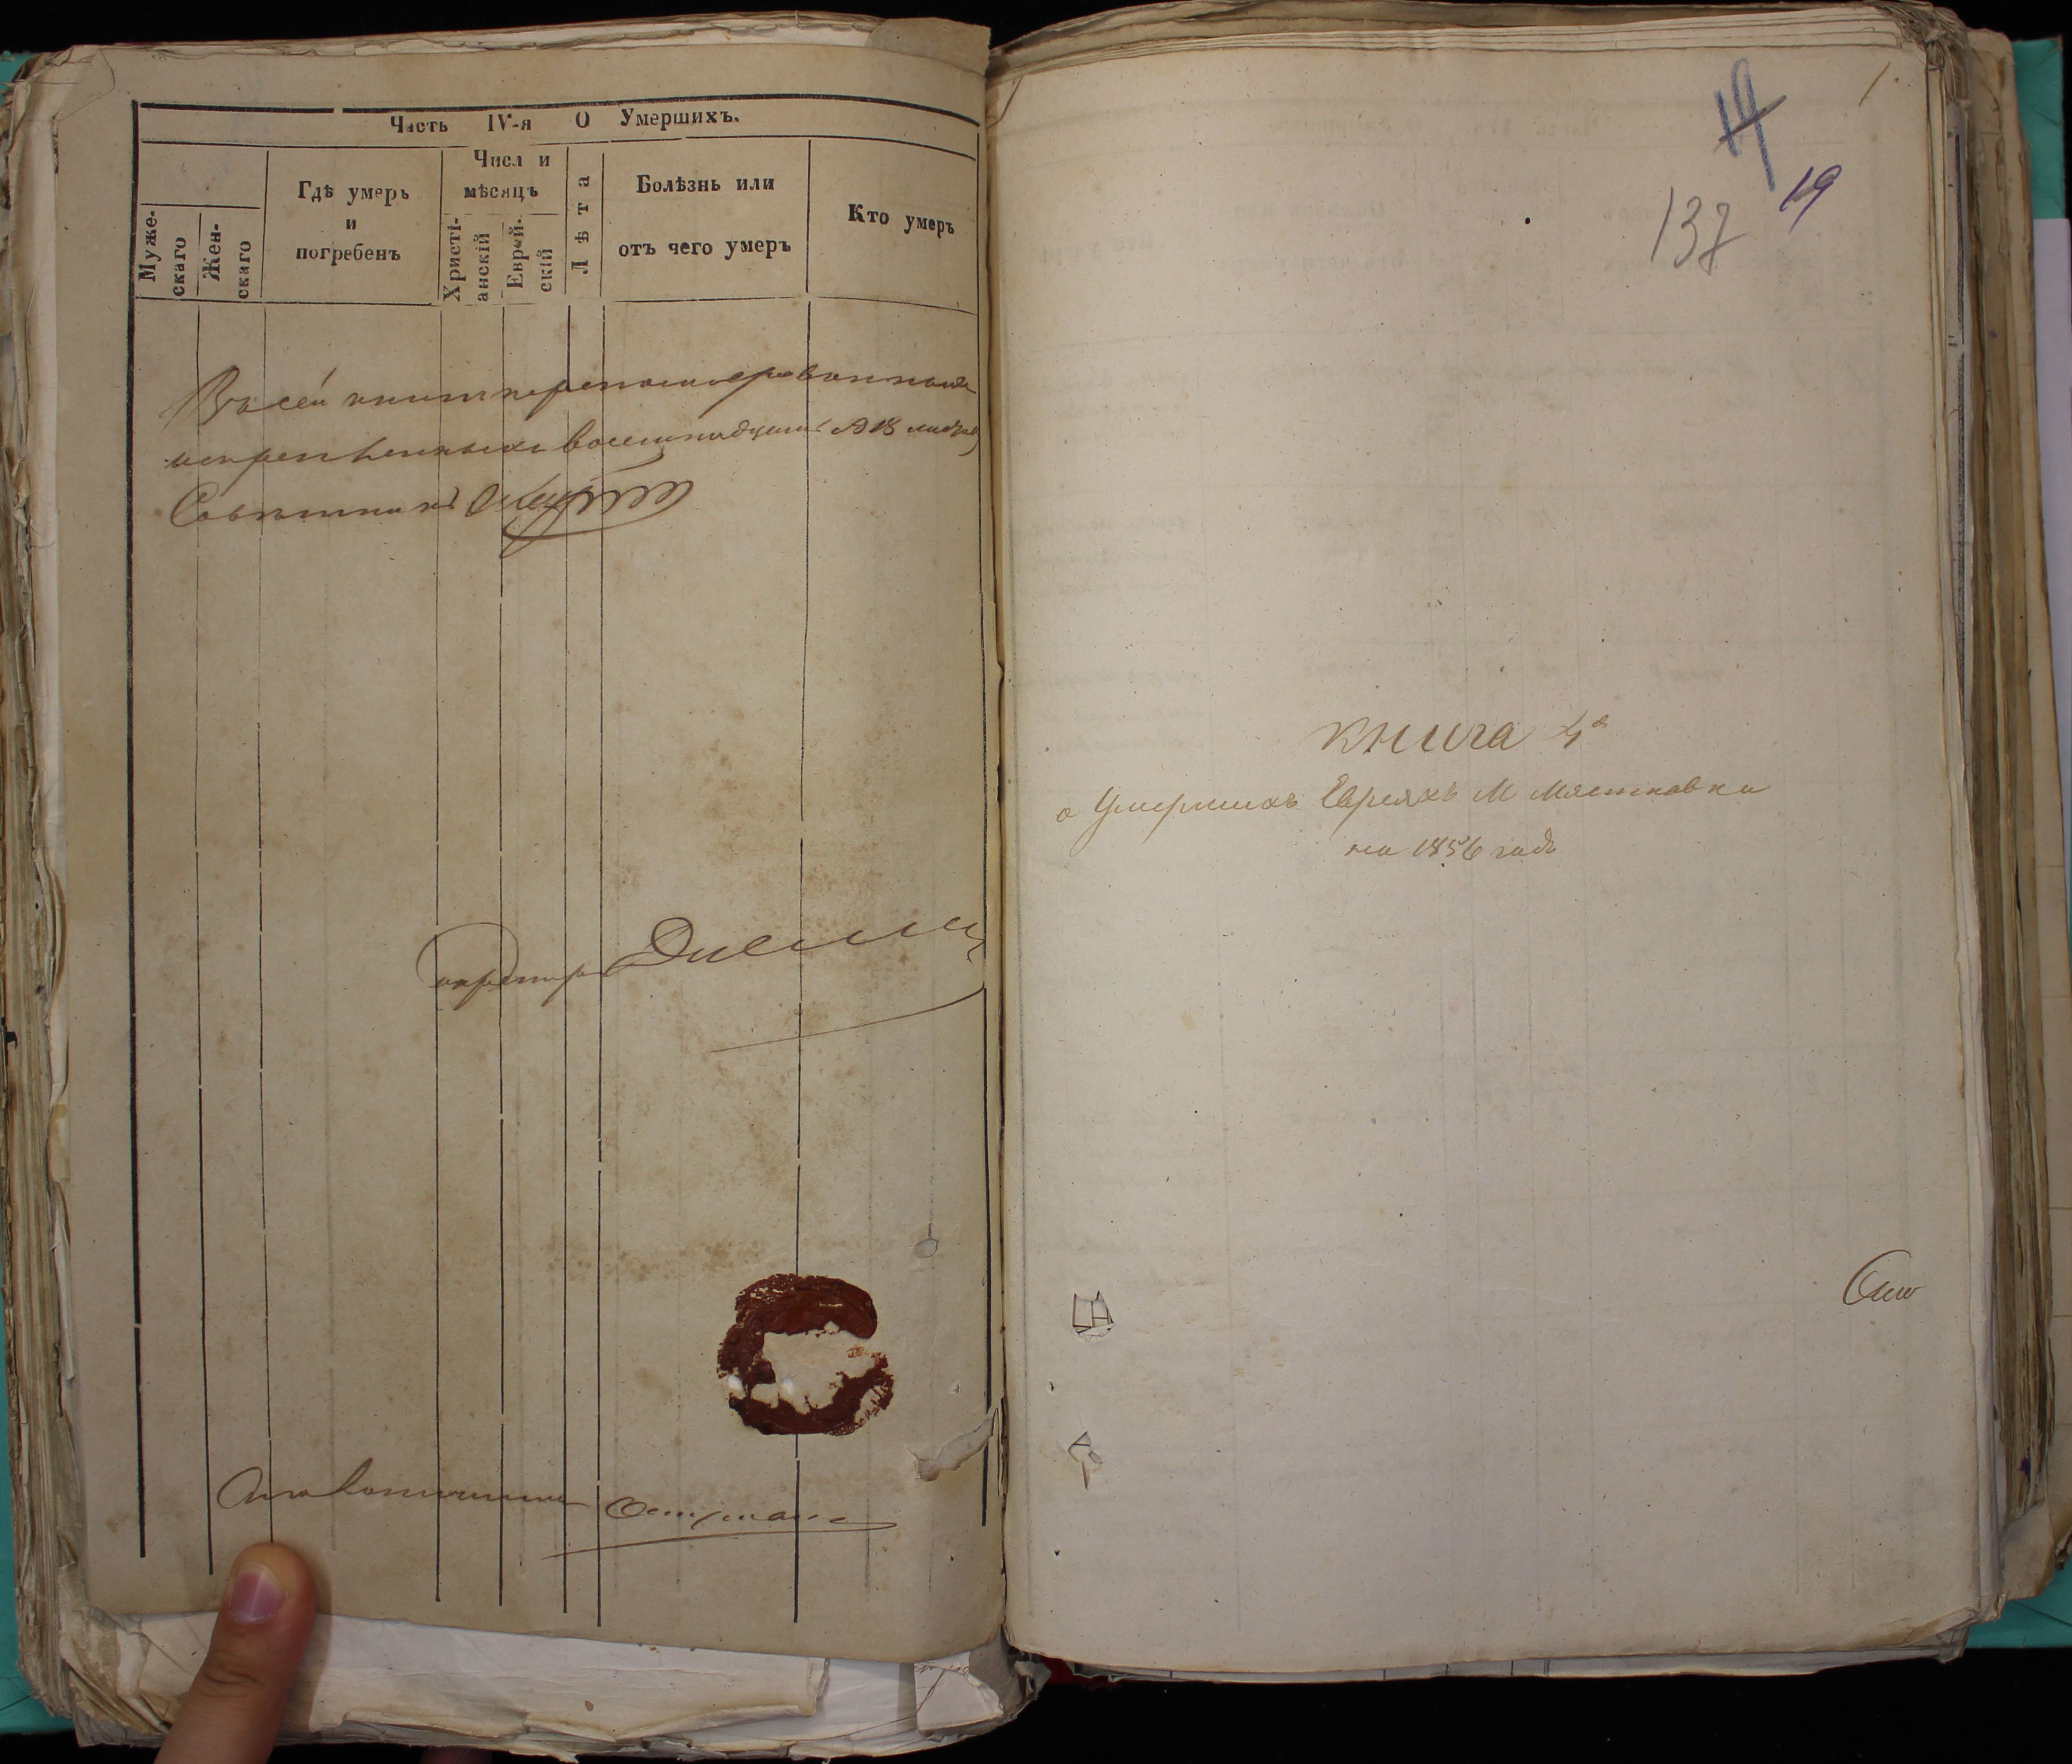 Часть IV-я О Умершихъ.
Муже-
скаго
Жен-
скаго
Гдѣ умеръ
и
погребенъ
Числ и
мѣсяцъ
Христі-
анскій
Еврей-
скій
Лѣта
Болѣзнь или
отъ чего умеръ
Кто умеръ
Въ сей книгѣ перенумерованныхъ
искрепленныхъ восемнадцать 18 листовъ
Совѣтникъ
Секретарь
Столоначальникъ
1.
19
137
19
Книга 4а
о Умершихъ Евреяхъ М Мястковки
на 1856 годъ